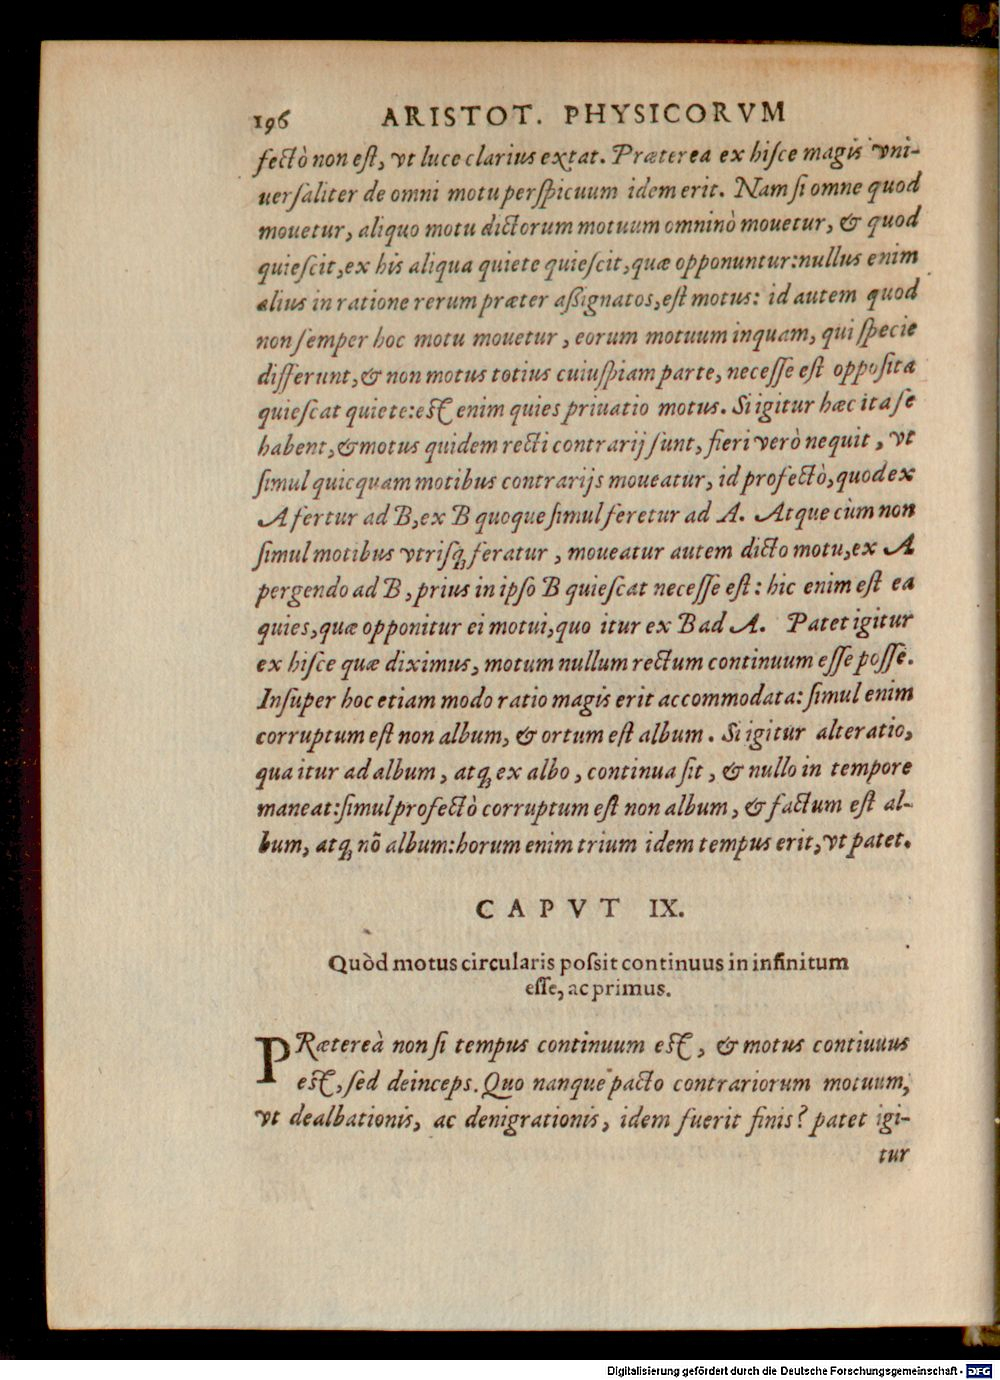 196 ARISTOT. PHYSICORVM
fectò non eſt, vt luce clarius extat. Præterea ex hiſce magis vni-
uerſaliter de omni motu perſpicuum idem erit. Nam ſi omne quod
mouetur, aliquo motu dictorum motuum omninò mouetur, & quod
quieſcit, ex his aliqua quiete quieſcit, quæ opponuntur: nullus enim
alius in ratione rerum præter aßignatos, eſt motus: id autem quod
non ſemper hoc motu mouetur, eorum motuum inquam, qui ſpecie
differunt, & non motus totius cuiuſpiam parte, neceſſe eſt oppoſita
quieſcat quiete: eſt enim quies priuatio motus. Si igitur hæc ita ſe
habent, & motus quidem recti contrarij ſunt, fieri verò nequit, vt
ſimul quicquam motibus contrarijs moueatur, id profectò, quod ex
A fertur ad B, ex B quoque ſimul feretur ad A. Atque cùm non
ſimul motibus vtriſq; feratur, moueatur autem dicto motu, ex A
pergendo ad B, prius in ipſo B quieſcat neceſſe eſt: hic enim eſt ea
quies, quæ opponitur ei motui, quo itur ex B ad A. Patet igitur
ex hiſce quæ diximus, motum nullum rectum continuum eſſe poſſe.
Inſuper hoc etiam modo ratio magis erit accommodata: ſimul enim
corruptum eſt non album, & ortum eſt album. Si igitur alteratio,
qua itur ad album, atq; ex albo, continua ſit, & nullo in tempore
maneat: ſimul profectò corruptum eſt non album, & factum eſt al-
bum, atq; nõ album: horum enim trium idem tempus erit, vt patet.
CAPVT IX.
Quòd motus circularis poſsit continuus in infinitum
eſſe, ac primus.
PRætereà non ſi tempus continuum eſt, & motus contiuuus
eſt, ſed deinceps. Quo nanque pacto contrariorum motuum,
vt dealbationis, ac denigrationis, idem fuerit finis? patet igi-
tur
Digitalisierung gefördert durch die Deutsche Forschungsgemeinschaft - DFG